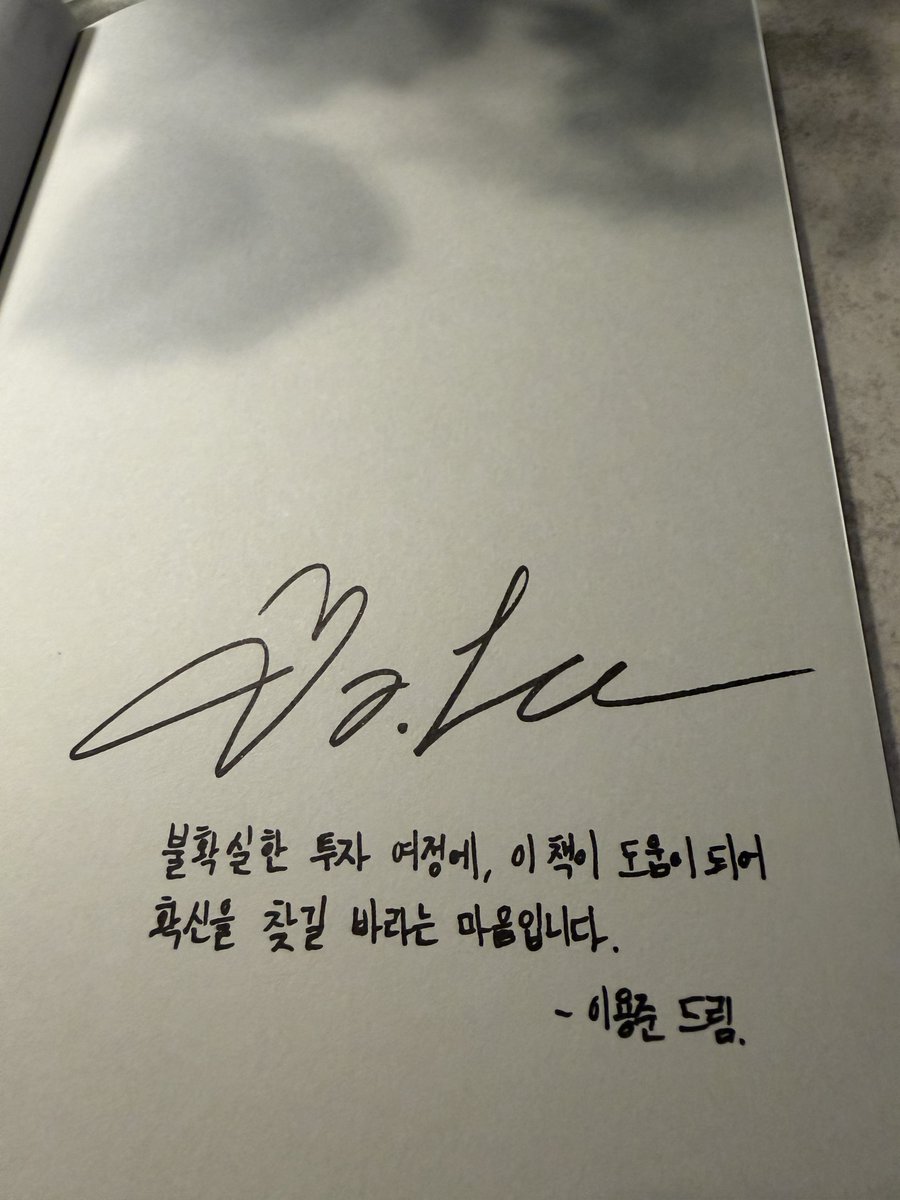 불확실한 투자 여정에, 이 책이 도움이 되어
확신을 찾길 바라는 마음입니다.
- 이용준 드림.